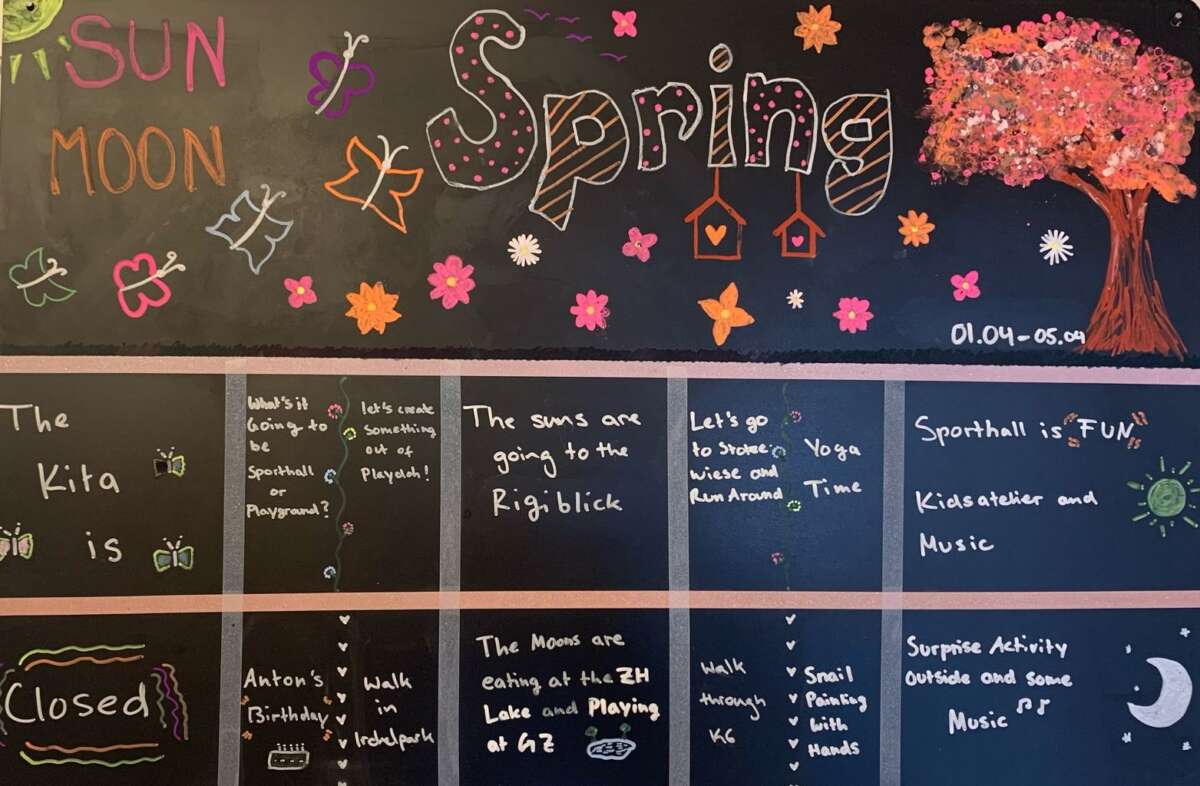 SUN
MOON
Spring
01.04-05.04
The
Kita
is
What's it
Going to
be
Sporthall
or
Playground?
let's create
something
out of
Playdoh!
The suns are
going to the
Rigiblick
Let's go
to
wiese and
Run Around
Yoga
Time
Sporthall is FUN
Kidsatelier and
Music
Closed
Anton's
Birthday
Walk
in
Irchelpark
The Moons are
eating at the ZH
Lake and Playing
at GZ
Walk
through
K6
Snail
Painting
with
Hands
Surprise Activity
Outside and some
Music